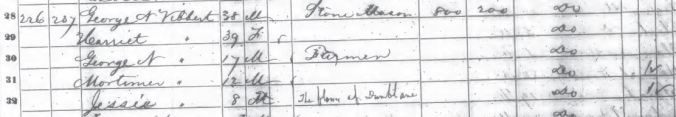 28 226 237 George N Vibbert 38 M Stone Mason 800 200 do
29 Harriet " 39 F do
30 George N " 17 M Farmer do
31 Mortimer " 12 M do 1/
32 Jessie " 8 M The flower of Dunblane do 1/
do